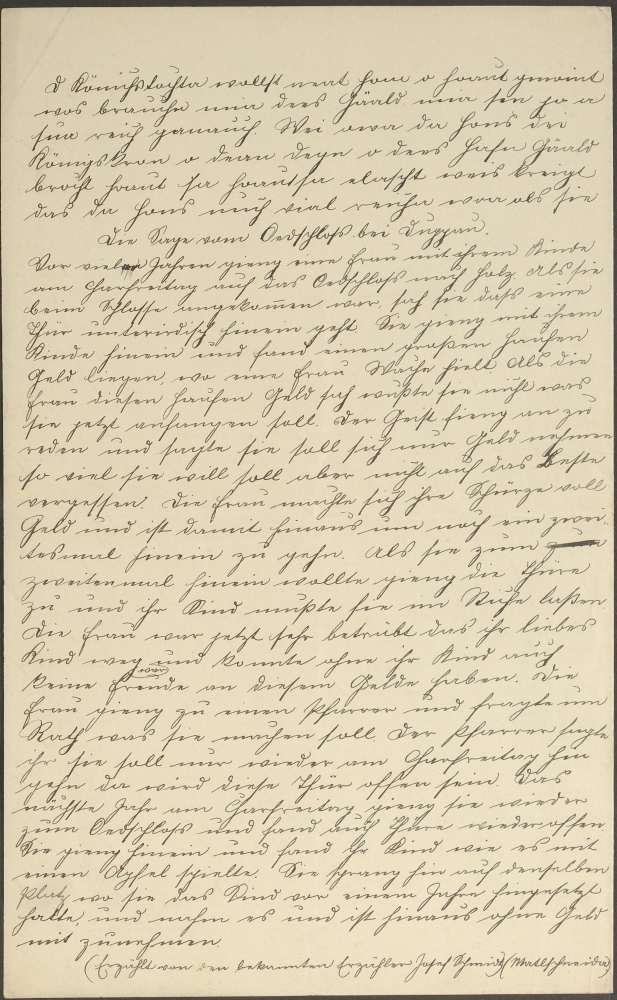 D Königstochta wollst neat hom o hoaut gmoint
wos brauchn mia dees Gäald mia sen jo a
sua reich ganauch. Wei owa da Hons dei
Königskron o dean Degn o dees Hafn Gäald
brocht hoaut sa hoautsa elascht weis kreigt
das da Hons nuch vial reicha woa als sie
Die Sage vom Oedschloss bei Duppau.
Vor vielen Jahren gieng eine Frau mit ihrem Kinde
am Charfreitag auf das Oedschloss nach Holz. Als sie
beim Schlosse angekommen war, sah sie dass eine
Thür unterirdisch hinein geht. Sie gieng mit ihrem
Kinde hinein und fand einen großen Haufen
Geld liegen, wo eine Frau Wache hielt. Als die
Frau diesen Haufen Geld sah wußte sie nicht was
sie jetzt anfangen soll. Der Geist fieng an zu
reden und sagte sie soll sich nur Geld nehmen
so viel sie will soll aber nicht auf das Beste
vergessen. Die Frau machte sich ihre Schürze voll
Geld und ist damit hinaus um noch ein zwei-
tesmal hinein zu gehn. Als sie zum
zweitenmal hinein wollte gieng die Thüre
zu und ihr Kind mußte sie im Stiche laßen.
Die Frau war jetzt sehr betrübt das ihr liebes
Kind weg war und konnte ohne ihr Kind auch
keine Freude an diesem Gelde haben. Die
Frau gieng zu einen Pfarrer und fragte um
Rath was sie machen soll. Der Pfarrer sagte
ihr sie soll nur wieder am Charfreitag hin
gehn da wird diese Thür offen sein. Das
nächste Jahr am Charfreitag gieng sie wieder
zum Oedschloss und fand auch Thüre wieder offen.
Sie gieng hinein und fand Ihr Kind wie es mit
einen Apfel spielte. Sie sprang hin auf denselben
Platz wo sie das Kind vor einem Jahr hingesetzt
hatte, und nahm es und ist hinaus ohne Geld
mit zunehmen.
(Erzählt von den bekannten Erzähler Josef Schmidt (Matlschneider)